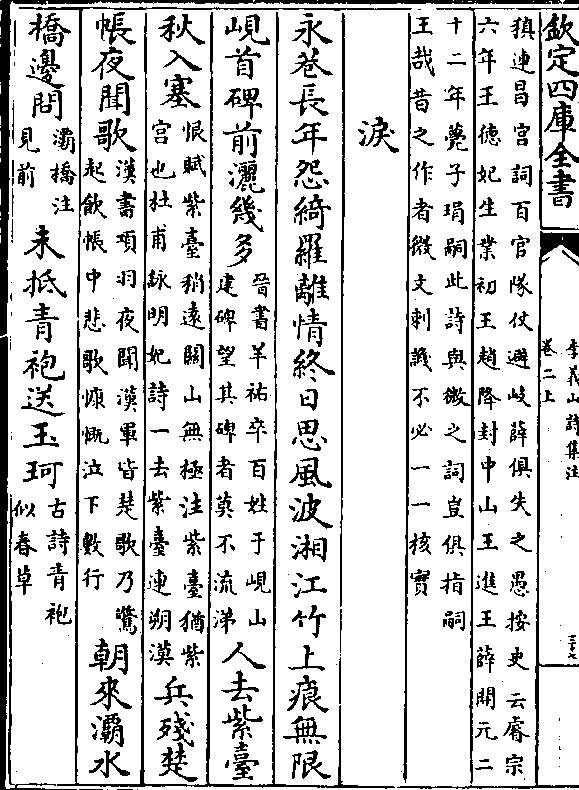 欽定四庫全書
李義山詩集注
卷二上
三十七
頛連昌宮詞百官隊仗避岐薛俱失之愚按史云睿宗
六年王德妃生業初王趙降封中山王進王薛開元二
十二年薨子琄嗣此詩與微之詞豈俱指嗣
王哉昔之作者微文刺譏不必一一核實
淚
永巷長年怨綺羅離情終日思風波湘江竹上痕無限
峴首碑前灑幾多晉書羊祜卒百姓于峴山建碑望其碑者莫不流涕人去紫臺
秋入塞恨賦紫臺稍遠關山無極注紫臺猶紫宮也杜甫詠明妃詩一去紫臺連朔漠兵殘楚
帳夜聞歌漢書項羽夜聞漢軍皆楚歌乃驚起飲帳中悲歌慷慨泣下數行朝來灞水
橋邊問灞橋注見前未抵青袍送玉珂古詩青袍似春草